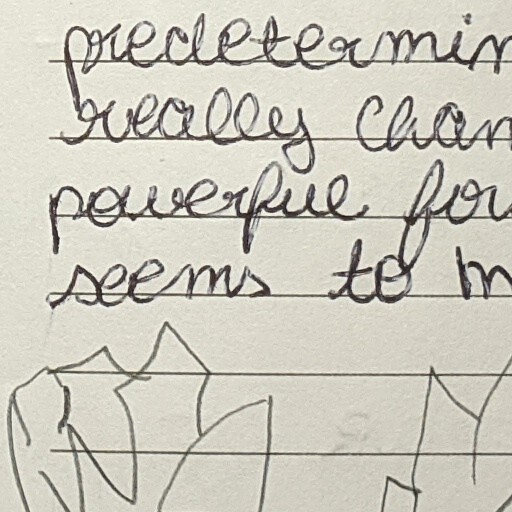 predetermin
really chan
powerful for
seems to m